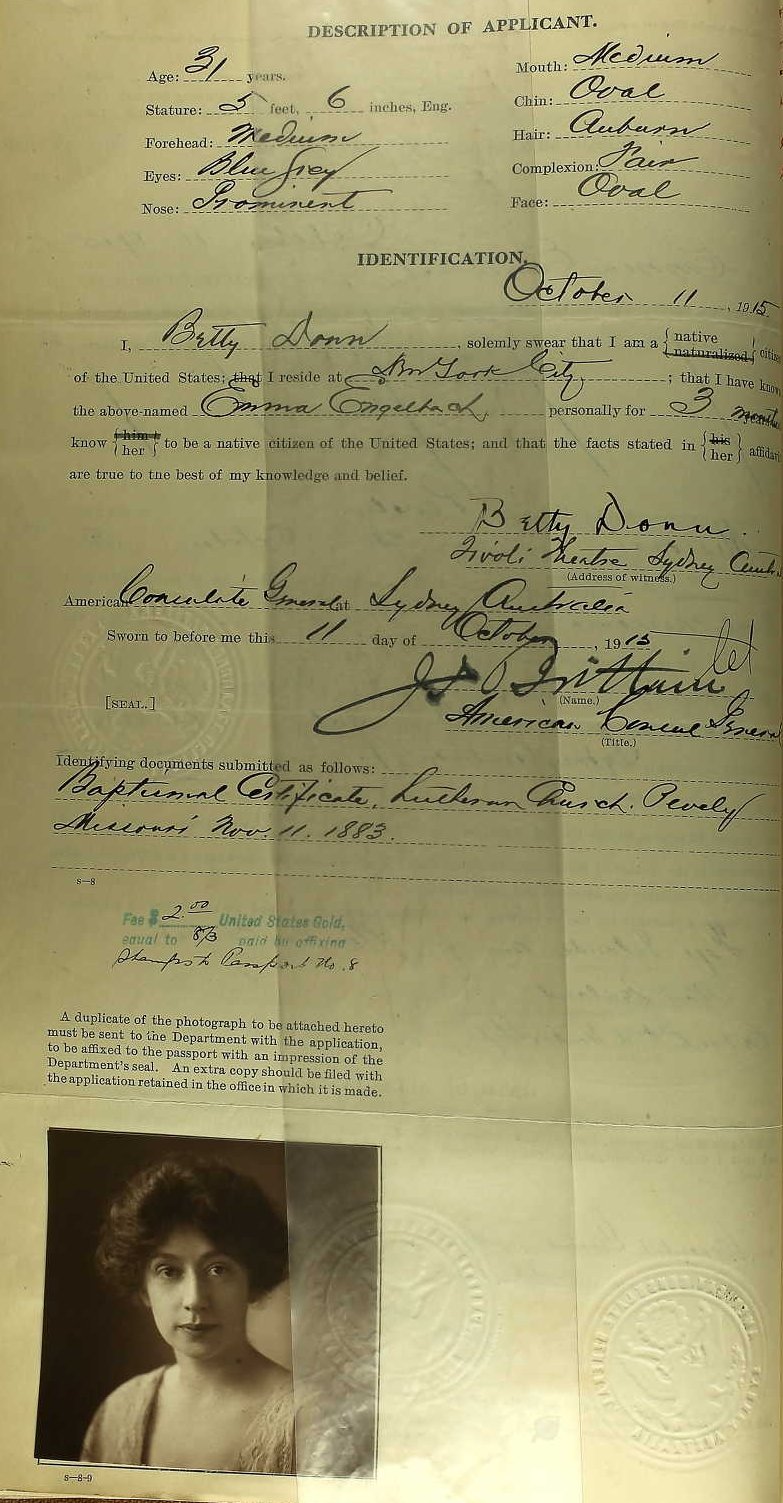 DESCRIPTION OF APPLICANT.
Age: 31 years. Mouth: Medium
Stature: 5 feet, 6 inches, Eng. Chin: Oval
Forehead: Medium Hair: Auburn
Eyes: Blue Grey Complexion: Fair
Nose: Prominent Face: Oval
IDENTIFICATION.
October 11, 1915.
I, Betty Donn, solemnly swear that I am a { native
naturalized } citize
of the United States; that I reside at New York City; that I have know
the above-named Emma Engelbach, personally for 3 months years
know { him
her } to be a native citizen of the United States; and that the facts stated in { his
her } affidavi
are true to the best of my knowledge and belief.
Betty Donn.
Tivoli Theatre Sydney Austr
(Address of witness.)
American Consulate General at Sydney Australia
Sworn to before me this 11 day of October, 1915
J. I. Brittain
(Name.)
[SEAL.]
American Consul General
(Title.)
Identifying documents submitted as follows:
Baptismal Certificate, Lutheran Church. Pevely
Missouri Nov. 11. 1883.
s—8
Fee $ 2.00 United States Gold,
equal to 8/3 paid by affixing
Stamps to Passport No. 8
A duplicate of the photograph to be attached hereto
must be sent to the Department with the application,
to be affixed to the passport with an impression of the
Department's seal. An extra copy should be filed with
the application retained in the office in which it is made.
s—8-9